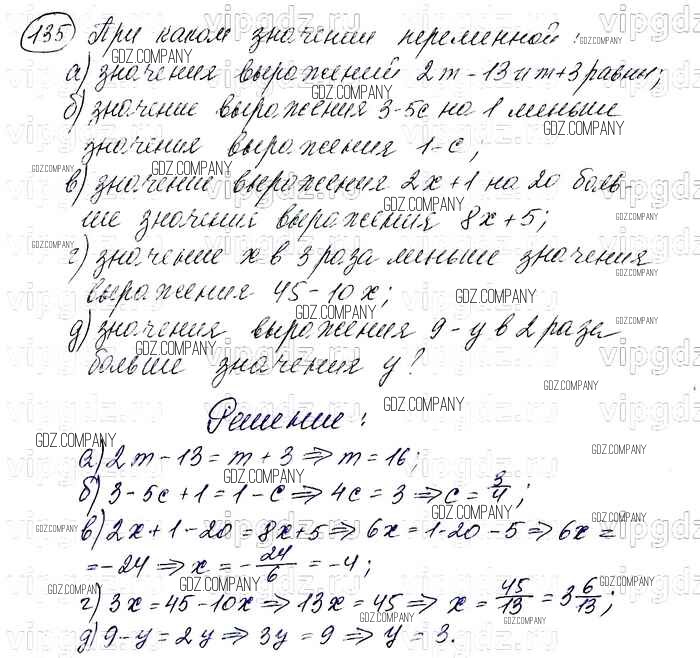 135 При каком значении переменной:
а) значения выражений 2m-13 и m+3 равны;
б) значение выражения 3-5c на 1 меньше
значения выражения 1-c;
в) значение выражения 2x+1 на 20 боль-
ше значения выражения 8x+5;
г) значение x в 3 раза меньше значения
выражения 45-10x;
д) значения выражения 9-y в 2 раза
больше значения y?
Решение:
а) 2m-13=m+3⇒m=16;
б) 3-5c+1=1-c⇒4c=3⇒c=3/4;
в) 2x+1-20=8x+5⇒6x=1-20-5⇒6x=
=-24⇒x=-24/6=-4;
г) 3x=45-10x⇒13x=45⇒x=45/13=3 6/13;
д) 9-y=2y⇒3y=9⇒y=3.
GDZ.COMPANY
vipgdz.ru